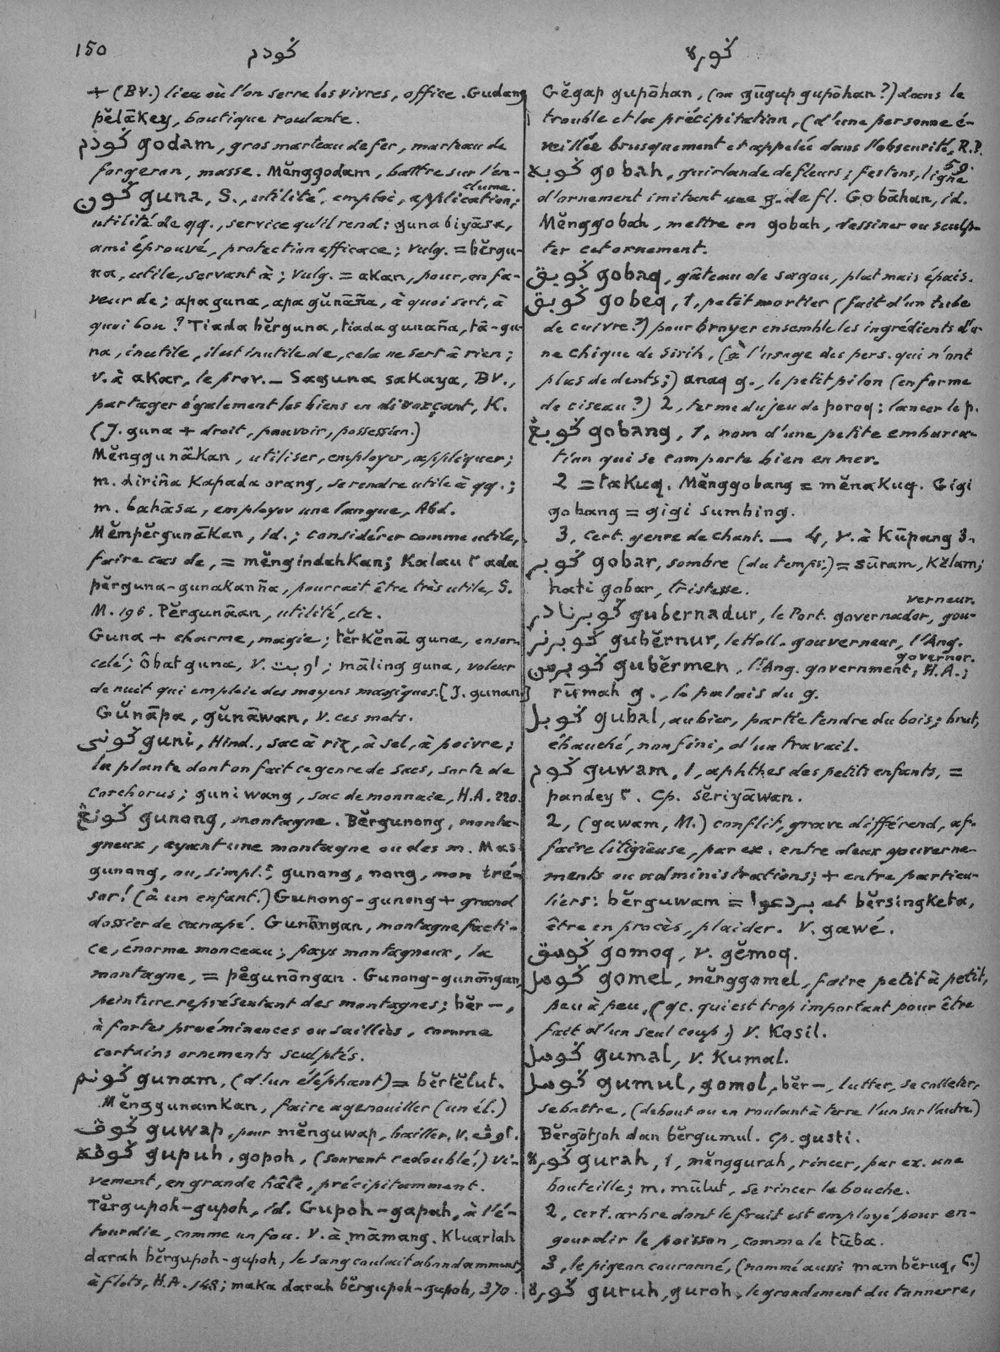 150 کودم کوره
+ (BV.) lieu où l'on serre les vivres, office. Gudang
pĕlākey, boutique roulante.
کودم godam, gros marteau de fer, marteau de
forgeron, masse. Mĕnggodam, battre sur l'en-
clume.
کون guna, S., utilité, emploi, application;
utilité de qq., service qu'il rend: guna biyāsa,
ami éprouvé, protection efficace; vulg. = bĕrgu-
na, utile, servant à; vulg. = akan, pour, en fa-
veur de; apa guna, apa gŭnāña, à quoi sert, à
quoi bon? Tiada bĕrguna, tiada gunaña, tā-gu-
na, inutile, il est inutile de, cela ne sert à rien;
v. à akar, le prov. — Saguna sakaya, BV.,
partager également les biens en divorçant, K.
(J. guna + droit, pouvoir, possession.)
Mĕnggunākan, utiliser, employer, appliquer;
m. diriña kapada orang, se rendre utile à qq.;
m. bahāsa, employer une langue, Abd.
Mĕmpĕrgunākan, id.; considérer comme utile,
faire cas de, = mĕngindahkan; Kalau ٢ ada
pĕrguna-gunakanña, pourrait être très utile, S.
M. 196. Pĕrgunāan, utilité, etc.
Guna + charme, magie; tĕrkĕnā guna, ensor-
celé; ôbat guna, v. اوبت; māling guna, voleur
de nuit qui emploie des moyens magiques. [J. gunan]
Gŭnāpa, gŭnāwan, v. ces mots.
کونى guni, Hind., sac à riz, à sel, à poivre;
la plante dont on fait ce genre de sacs, sorte de
Corchorus; guni wang, sac de monnaie, H.A. 220.
کونڠ gunong, montagne. Bĕrgunong, monta-
gneux, ayant une montagne ou des m. Mas
gunong, ou, simplt, gunong, nong, mon tré-
sor! (à un enfant.) Gunong-gunong + grand
dossier de canapé. Gunōngan, montagne facti-
ce, énorme monceau; pays montagneux, la
montagne, = pĕgunōngan. Gunong-gunōngan,
peinture représentant des montagnes; bĕr —,
à fortes proéminences ou saillies, comme
certains ornements sculptés.
کونم gunam, (d'un éléphant) = bĕrtĕlut.
Mĕnggunamkan, faire agenouiller (un él.)
کوڤ guwap, pour mĕnguwap, bailler, v. اوڤ.
کوڤه gupuh, gopoh, (souvent redoublé,) vi-
vement, en grande hâte, précipitamment.
Tĕrgupoh-gupoh, id. Gupoh-gapah, à l'é-
tourdie, comme un fou. V. à māmang. Kluarlah
darah bĕrgupoh-gupoh, le sang coulait abondamment,
à flots, H.A. 148; maka darah bĕrgupoh-gupoh, 370.
Gĕgap gupōhan, (ou gūgup gupōhan?) dans le
trouble et la précipitation, (d'une personne é-
veillée brusquement et appelée dans l'obscurité, R.P.
58.
کوبه gobah, guirlande de fleurs; festons, ligne
d'ornement imitant une g. de fl. Gobāhan, id.
Mĕnggobah, mettre en gobah, dessiner ou sculp-
ter cet ornement.
کوبق gobaq, gâteau de sagou, plat mais épais.
کوبق gobeq, 1, petit mortier (fait d'un tube
de cuivre?) pour broyer ensemble les ingrédients d'u-
ne chique de sirih, (à l'usage des pers. qui n'ont
plus de dents;) anaq g., le petit pilon (en forme
de ciseau?) 2, terme du jeu de poroq: lancer le p.
کوبڠ gobang, 1, nom d'une petite embarca-
tion qui se comporte bien en mer.
2 = takuq. Mĕnggobang = mĕnakuq. Gigi
gobang = gigi sumbing.
3, cert. genre de chant. — 4, v. à Kūpang 3.
کوبر gobar, sombre (du temps:) = sūram, kĕlam;
hati gobar, tristesse.
کوبرنادر gubernadur, le Port. governador, gou-
verneur.
کوبرنر gubĕrnur, le Holl. gouverneur, l'Ang.
governor.
کوبرمن gubĕrmen, l'Ang. government, H.A.;
rūmah g., le palais du g.
کوبل gubal, aubier, partie tendre du bois; brut,
ébauché, non fini, d'un travail.
کوم guwam, 1, aphthes des petits enfants, =
pandey ٢. Cp. sĕriyāwan.
2, (gawam, M.) conflit, grave différend, af-
faire litigieuse, par ex. entre deux gouverne-
ments ou administrations; + entre particu-
liers: bĕrguwam = بردعوا et bĕrsingketa,
être en procès, plaider. V. gawé.
کومق gomoq, v. gĕmoq.
کومل gomel, mĕnggomel, faire petit à petit,
peu à peu, (qc. qui est trop important pour être
fait d'un seul coup.) V. Kosil.
کومل gumal, v. Kumal.
کومل gumul, gomol, bĕr —, lutter, se colleter,
se battre, (debout ou en roulant à terre l'un sur l'autre)
Bĕrgōtjoh dan bĕrgumul. Cp. gusti.
کوره gurah, 1, mĕnggurah, rincer, par ex. une
bouteille; m. mūlut, se rincer la bouche.
2, cert. arbre dont le fruit est employé pour en-
gourdir le poisson, comme le tūba.
3, le pigeon couronné, (nommé aussi mambĕruq, C.)
کوره guruh, guroh, le grondement du tonnerre,